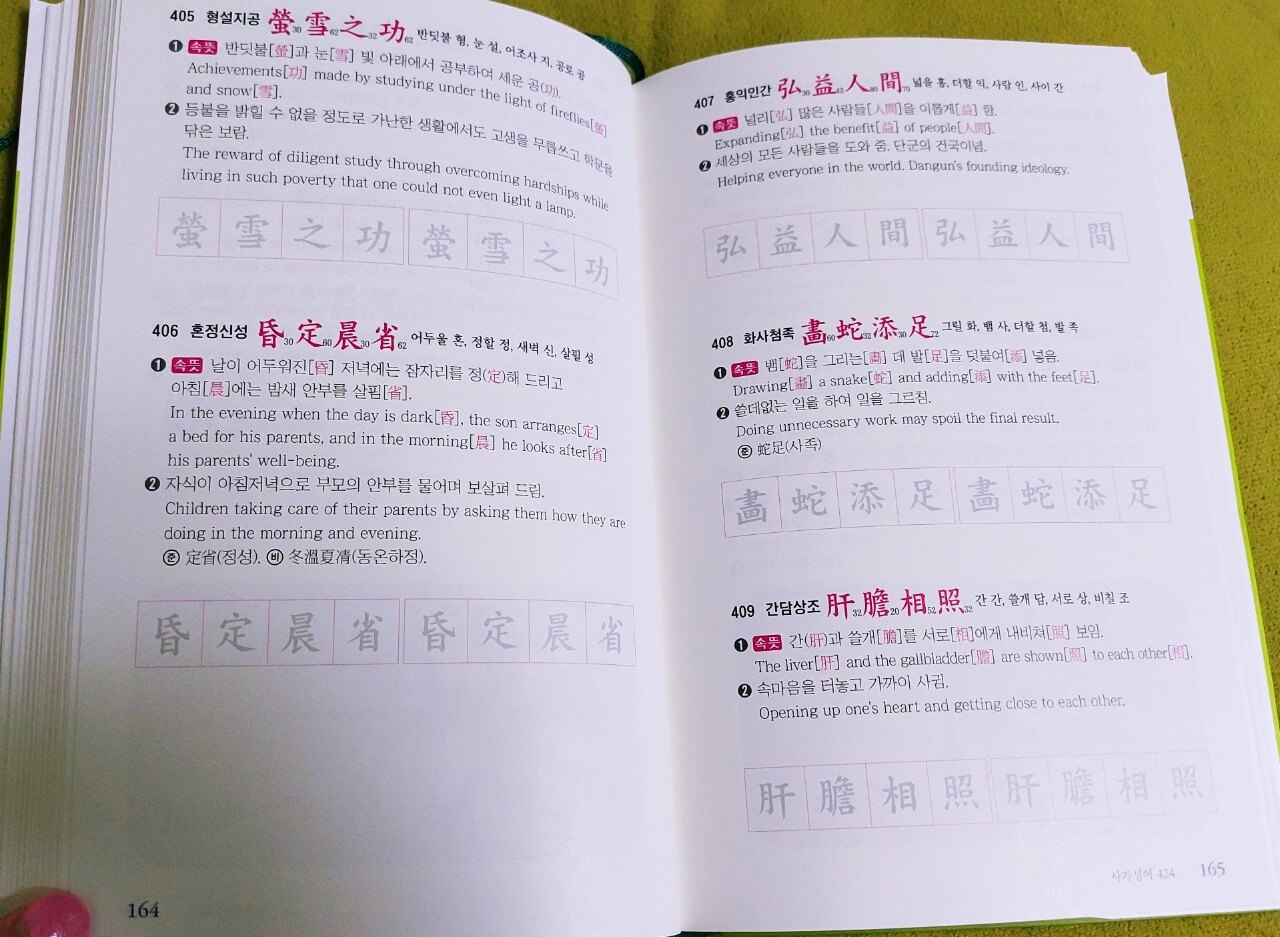 405 형설지공 螢30雪62之32功62 반딧불 형, 눈 설, 어조사 지, 공로 공
❶ 속뜻 반딧불[螢]과 눈[雪] 빛 아래에서 공부하여 세운 공(功).
Achievements[功] made by studying under the light of fireflies[螢]
and snow[雪].
❷ 등불을 밝힐 수 없을 정도로 가난한 생활에서도 고생을 무릅쓰고 학문을
닦은 보람.
The reward of diligent study through overcoming hardships while
living in such poverty that one could not even light a lamp.
螢雪之功 螢雪之功
406 혼정신성 昏30定60晨30省62 어두울 혼, 정할 정, 새벽 신, 살필 성
❶ 속뜻 날이 어두워진[昏] 저녁에는 잠자리를 정(定)해 드리고
아침[晨]에는 밤새 안부를 살핌[省].
In the evening when the day is dark[昏], the son arranges[定]
a bed for his parents, and in the morning[晨] he looks after[省]
his parents' well-being.
❷ 자식이 아침저녁으로 부모의 안부를 물어며 보살펴 드림.
Children taking care of their parents by asking them how they are
doing in the morning and evening.
㊜ 定省(정성). ㊝ 冬溫夏凊(동온하정).
昏定晨省 昏定晨省
164
407 홍익인간 弘30益42人80間70 넓을 홍, 더할 익, 사람 인, 사이 간
❶ 속뜻 널리[弘] 많은 사람들[人間]을 이롭게[益] 함.
Expanding[弘] the benefit[益] of people[人間].
❷ 세상의 모든 사람들을 도와 줌. 단군의 건국이념.
Helping everyone in the world. Dangun's founding ideology.
弘益人間 弘益人間
408 화사첨족 畵60蛇32添30足72 그릴 화, 뱀 사, 더할 첨, 발 족
❶ 속뜻 뱀[蛇]을 그리는[畵] 데 발[足]을 덧붙여[添] 넣음.
Drawing[畵] a snake[蛇] and adding[添] with the feet[足].
❷ 쓸데없는 일을 하여 일을 그르침.
Doing unnecessary work may spoil the final result.
㊜ 蛇足(사족)
畵蛇添足 畵蛇添足
409 간담상조 肝32膽20相52照32 간 간, 쓸개 담, 서로 상, 비칠 조
❶ 속뜻 간(肝)과 쓸개[膽]를 서로[相]에게 내비쳐[照] 보임.
The liver[肝] and the gallbladder[膽] are shown[照] to each other[相].
❷ 속마음을 터놓고 가까이 사귐.
Opening up one's heart and getting close to each other.
肝膽相照 肝膽相照
사자성어 424 165